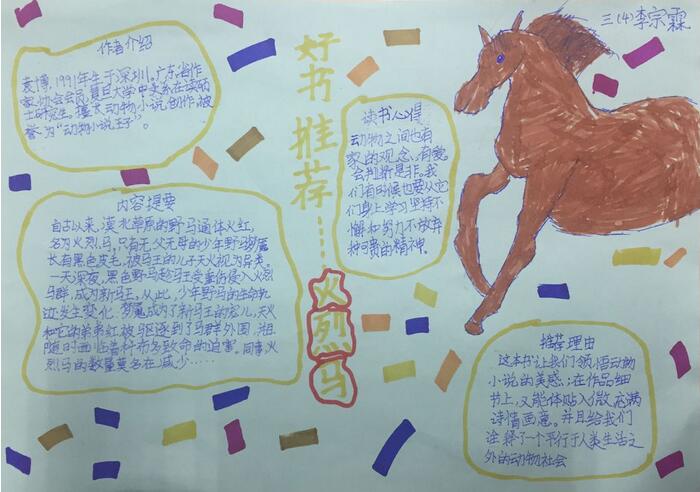 三(4)李宗霖
好书推荐……
火烈马
作者介绍
袁博,1991年生于深圳,广东省作
家协会会员,复旦大学中文系在读硕
士研究生,擅长动物小说创作,被
誉为“动物小说王子”。
内容提要
自古以来,漠北草原的野马通体火红,
名为火烈马,只有无父无母的少年野马
长有黑色皮毛,被马王的儿子天火视为异类。
一天深夜,黑色野马趁马王受重伤侵入火烈
马群,成为新马王,从此,少年野马的生命轨
迹发生变化,成为了新马王的宠儿,天火
和它的弟弟红被驱逐到了马群外围,
随时面临着种布多致命的迫害。同事火
烈马的数量莫名在减少……
读书心得
动物之间也有
家的观念、有爱
会判断是非。我
们有时候也要从它
们身上学习坚持不
懈和努力不放弃
种喷的精神。
推荐理由
这本书让我们领悟动物
小说的美感;在作品细
节上,又能体贴入微,充满
诗情画意。并且给我们
诠释了一个平行于人类生活之
外的动物社会